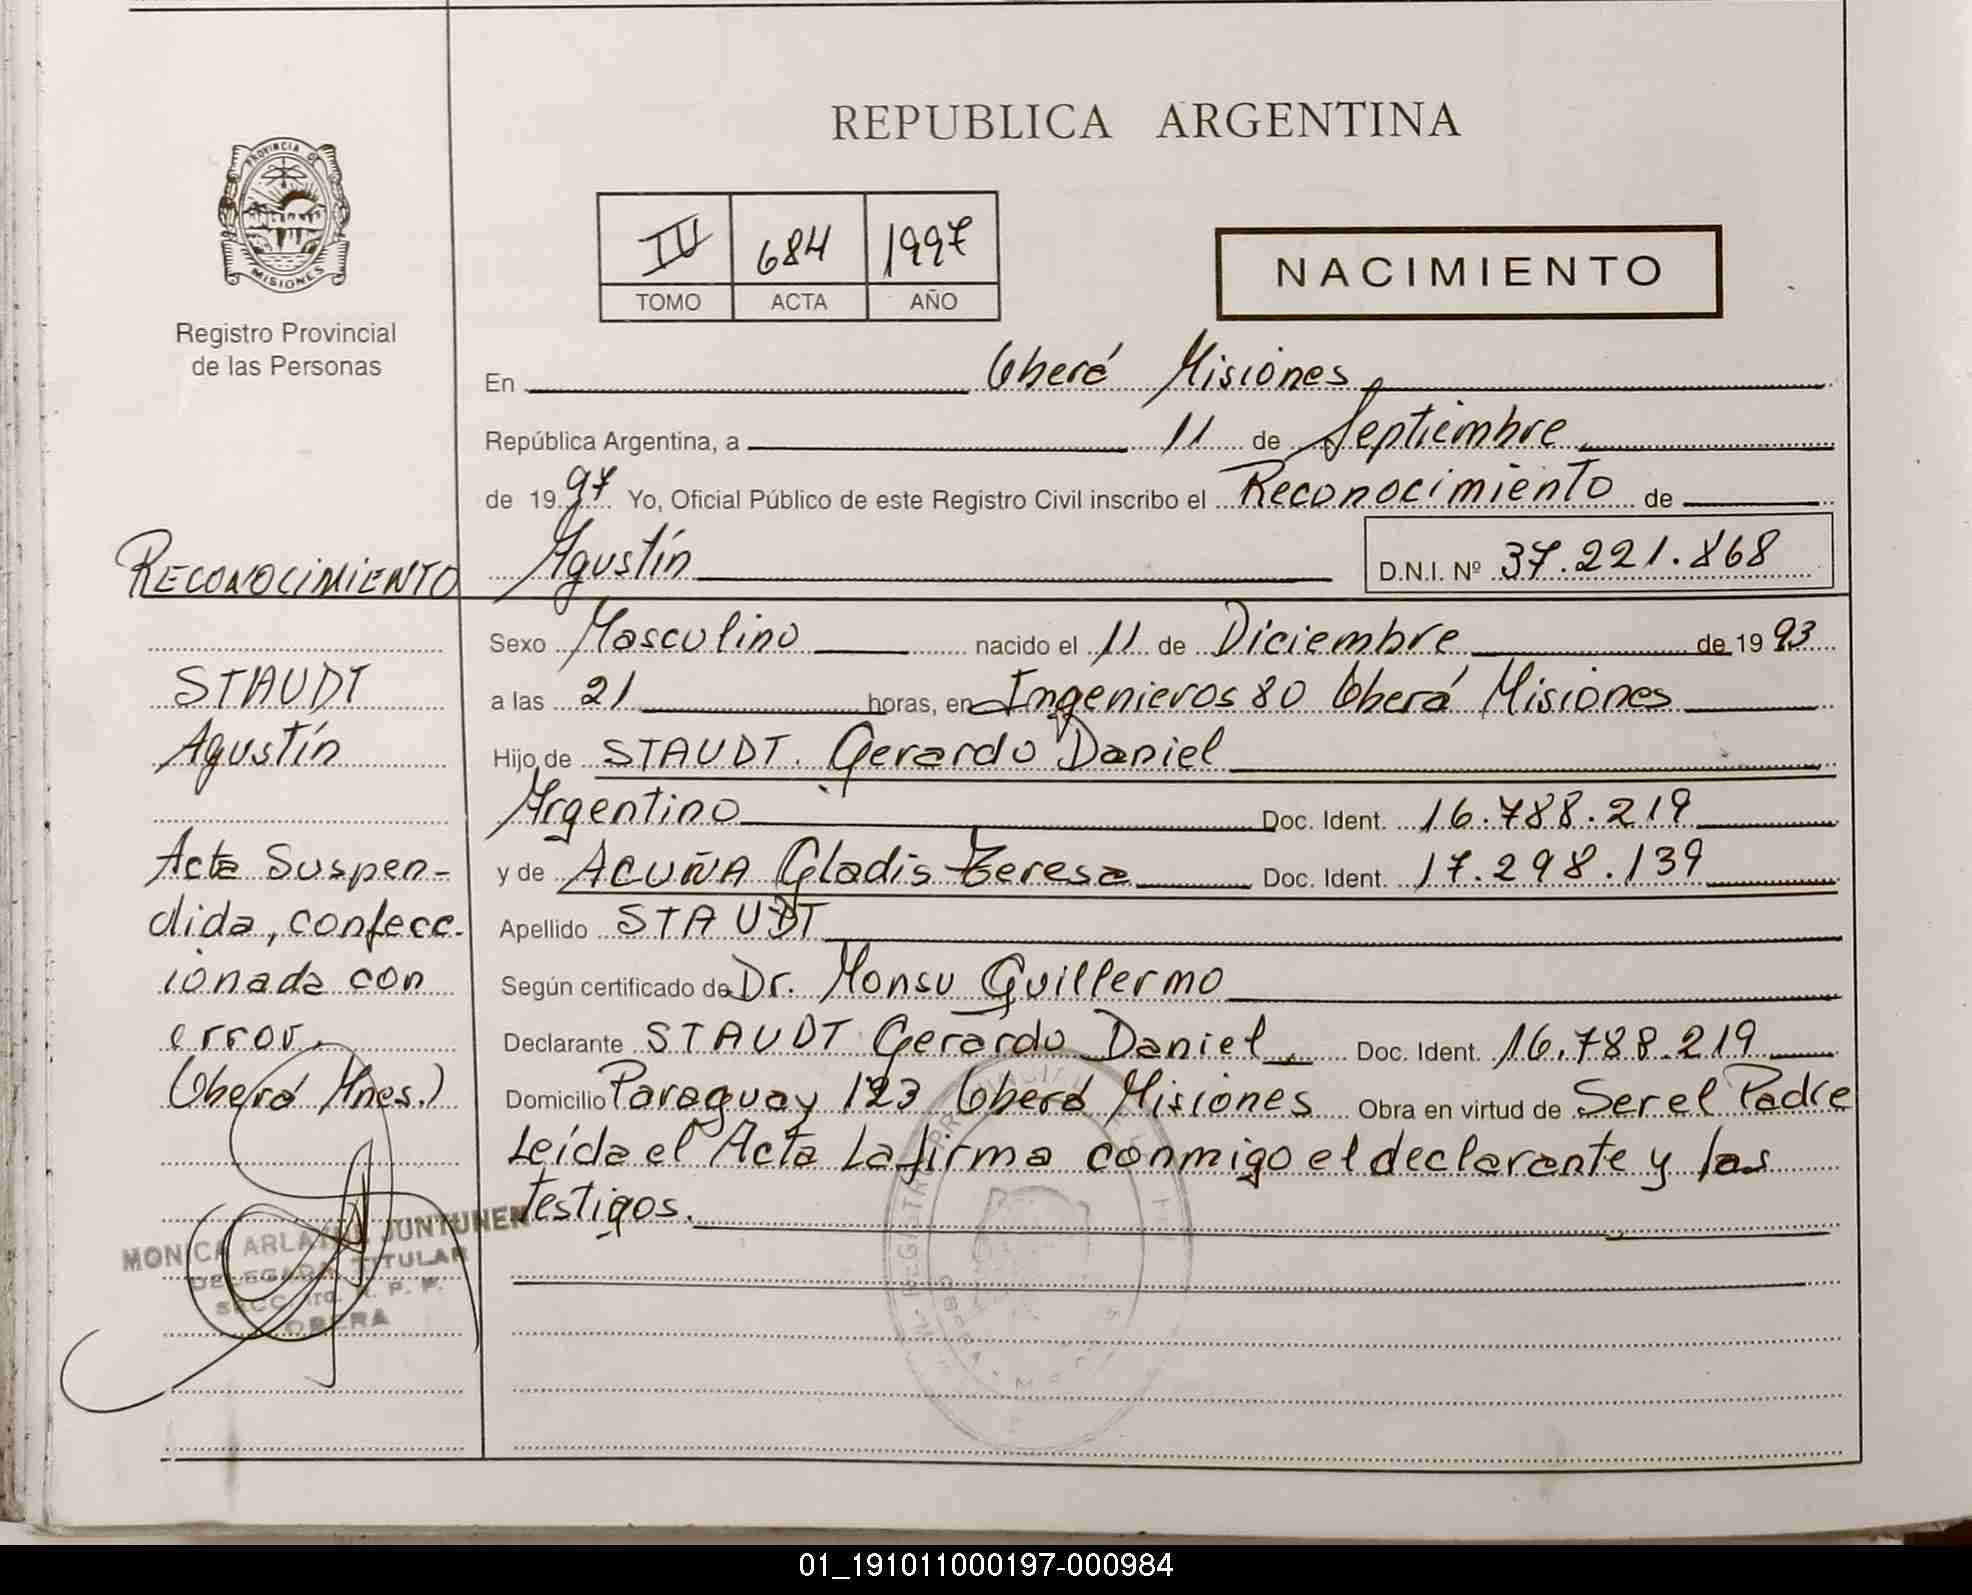 REPUBLICA ARGENTINA
PROVINCIA DE
MISIONES
Registro Provincial
de las Personas
IV 684 1997
TOMO ACTA AÑO
NACIMIENTO
En Oberá Misiones
República Argentina, a 11 de Septiembre
de 1997 Yo, Oficial Público de este Registro Civil inscribo el Reconocimiento de
Agustín D.N.I. Nº 37.221.868
Sexo Masculino nacido el 11 de Diciembre de 1993
a las 21 horas, en Ingenieros 80 Oberá Misiones
Hijo de STAUDT. Gerardo Daniel
Argentino Doc. Ident. 16.788.219
y de ACUÑA Gladis Teresa Doc. Ident. 17.298.139
Apellido STAUDT
Según certificado de Dr. Monsu Guillermo
Declarante STAUDT Gerardo Daniel. Doc. Ident. 16.788.219
Domicilio Paraguay 123 Oberá Misiones Obra en virtud de Ser el Padre
Leída el Acta La firma conmigo el declarante y los
testigos.
RECONOCIMIENTO
STAUDT
Agustín
Acta Suspen-
dida, confecc-
ionada con
error.
(Oberá Mnes.)
MONICA ARLA JUNTUNEN
DELEGADA TITULAR
SECC. 1ra. R. P. P.
OBERA
01_191011000197-000984